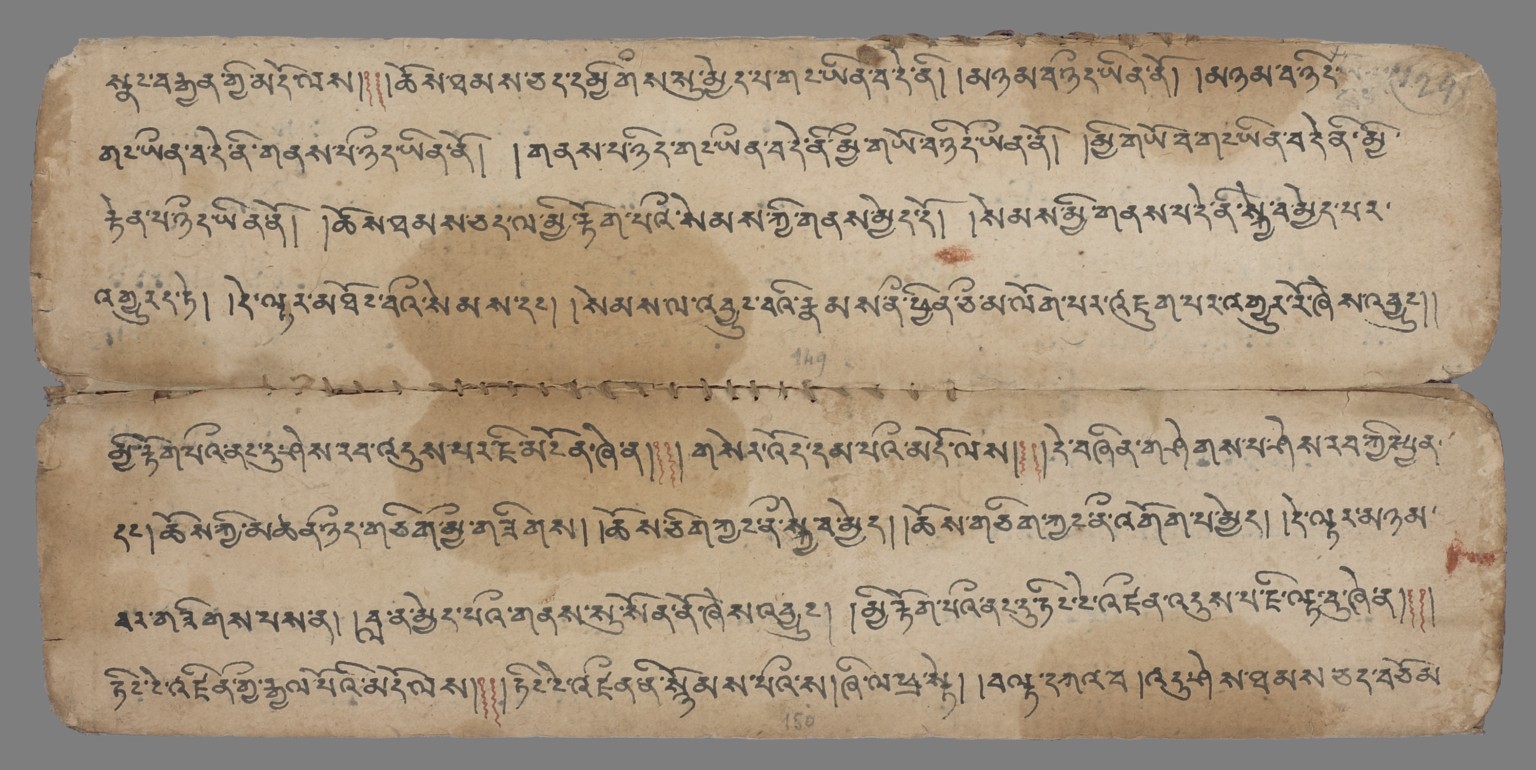 སྣང་བརྒྱན་གྱི་མདོ་ལས།༎ །ཆོས་ཐམས་ཅད་དམྱིགས་སུ་མྱེད་པ་གང་ཡིན་བ་དེ་ནི། །མཉམ་བ་ཉིད་ཡིན་ནོ། །མཉམ་བ་ཉིད་
གང་ཡིན་བ་དེ་ནི་གནས་པ་ཉིད་ཡིན་ནོ། །གནས་པ་ཉིད་གང་ཡིན་བ་དེ་ནི་མྱི་གཡོ་བ་ཉིད་ཡིན་ནོ། །མྱི་གཡོ་བ་གང་ཡིན་བ་དེ་ནི་མྱི་
རྟེན་པ་ཉིད་ཡིན་ནོ། །ཆོས་ཐམས་ཅད་ལ་མྱི་རྟོག་པའི་སེམས་ཀྱི་གནས་མྱེད་དོ། །སེམས་མྱི་གནས་པ་དེ་ནི་སྐྱེ་བ་མྱེད་པར་
འགྱུར་ད་ཏེ། །དེ་ལྟར་མཐོང་བའི་སེམས་དང་། །སེམས་ལ་འབྱུང་བའི་རྣམས་ནི་ཕྱིན་ཅི་མ་ལོག་པར་འཇུག་པར་འགྱུར་རོ་ཞེས་འབྱུང་།།
མྱི་རྟོག་པའི་ནང་དུ་ཤེས་རབ་འདུས་པར་ཇི་མངོན་ཞེ་ན།༎ །གསེར་འོད་དམ་པའི་མདོ་ལས།༎ །དེ་བཞིན་གཤེགས་པ་ཤེས་རབ་ཀྱི་སྤྱན་
དང་། ཆོས་ཀྱི་མཚན་ཉིད་གཅིག་མྱི་གཟིགས། །ཆོས་ཅིག་ཀྱང་ནི་སྐྱེ་བ་མྱེད། །ཆོས་གཅིག་ཀྱང་ནི་འགོག་པ་མྱེད། །དེ་ལྟར་མཉམ་
བར་གཟིགས་པས་ན། །བླ་ན་མྱེད་པའི་གནས་སུ་སོན་ནོ་ཞེས་འབྱུང་། །མྱི་རྟོག་པའི་ནང་དུ་ཏིང་ངེ་འཛིན་འདུས་པ་ཇི་ལྟ་བུ་ཞེ་ན།༎ །
ཏིང་ངེ་འཛིན་གྱི་རྒྱལ་པོའི་མདོ་ལས།༎ །ཏིང་ངེ་འཛིན་ནི་སྙོམས་པའི་ས། །ཞི་ལ་ཕྲ་སྟེ། །བལྟ་དཀའ་བ། །འདུ་ཤེས་ཐམས་ཅད་བཅོམ་
149
150